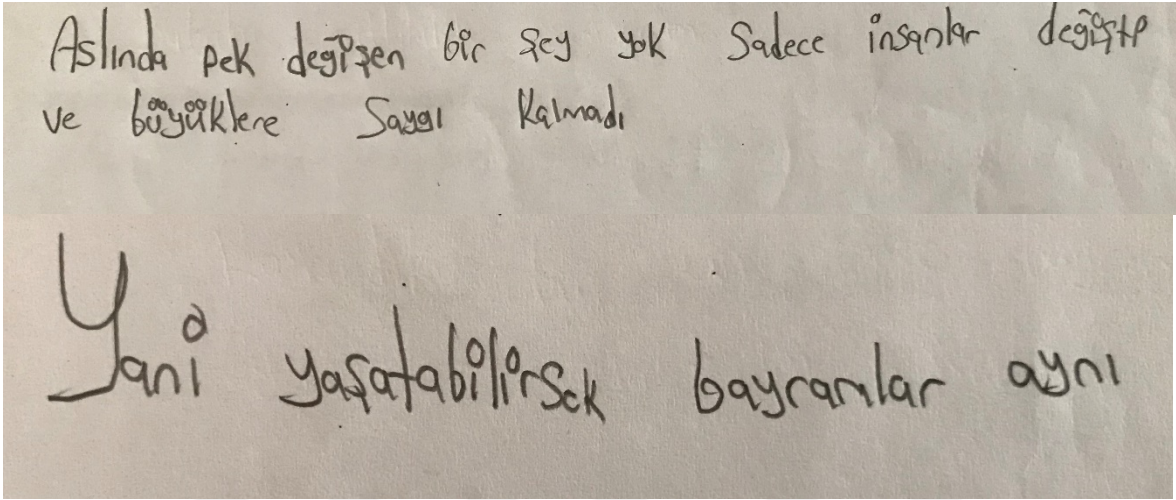 Aslında pek değişen bir şey yok Sadece insanlar değişti
ve büyüklere Saygı Kalmadı
Yani yaşatabilirsek bayramlar aynı